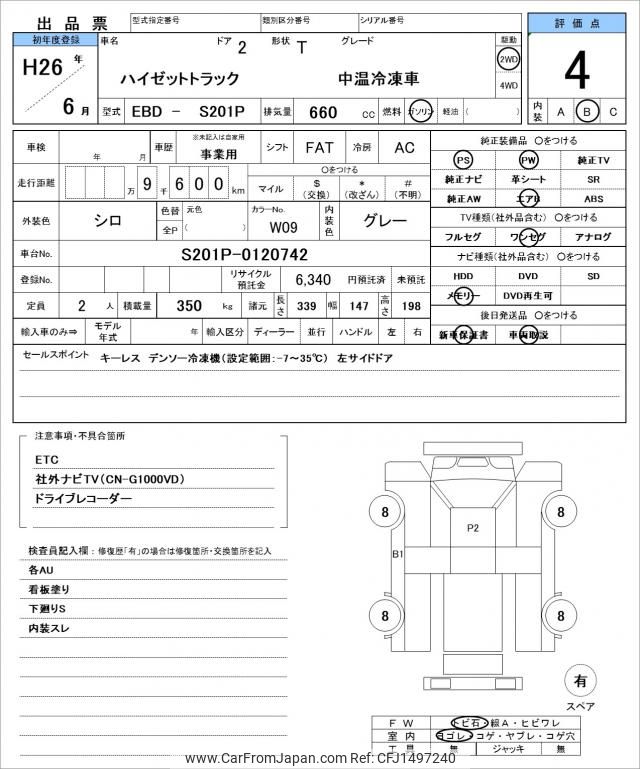 出品票 型式指定番号 類別区分番号 シリアル番号 評価点
初年度登録 車名 ドア 2 形状 T グレード 駆動
H26 年 ハイゼットトラック 中温冷凍車 2WD 4
6 月 4WD
型式 EBD － S201P 排気量 660 cc 燃料 ガソリン 軽油 ( ) 内装 A B C
車検 年 月 車歴 ※未記入は自家用 事業用 シフト FAT 冷房 AC 純正装備品 〇をつける
走行距離 万 9 千 6 0 0 km 〇をつける
マイル $ (交換) * (改ざん) # (不明)
PS PW 純正TV
純正ナビ 革シート SR
純正AW エアB ABS
外装色 シロ 色替 元色 カラーNo. 内装色 グレー
全P ( ) W09
TV種類(社外品含む) 〇をつける
フルセグ ワンセグ アナログ
車台No. S201P-0120742 ナビ種類(社外品含む) 〇をつける
登録No. リサイクル預託金 6,340 円預託済 未預託 HDD DVD SD
定員 2 人 積載量 350 kg 諸元 長さ 339 幅 147 高さ 198 メモリー DVD再生可
輸入車のみ⇒ モデル年式 年 輸入区分 ディーラー 並行 ハンドル 左 右 後日発送品 〇をつける
新車保証書 車両取説
セールスポイント キーレス デンソー冷凍機(設定範囲:-7～35℃) 左サイドドア
注意事項・不具合箇所
ETC
社外ナビTV(CN-G1000VD)
ドライブレコーダー
検査員記入欄：修復歴「有」の場合は修復箇所・交換箇所を記入
各AU
看板塗り
下廻りS
内装スレ
8 8
P2
B1
8 8
有
スペア
F W トビ石・線A・ヒビワレ
室 内 ヨゴレ・コゲ・ヤブレ・コゲ穴
工 具 無 ジャッキ 無
www.CarFromJapan.com Ref: CFJ1497240